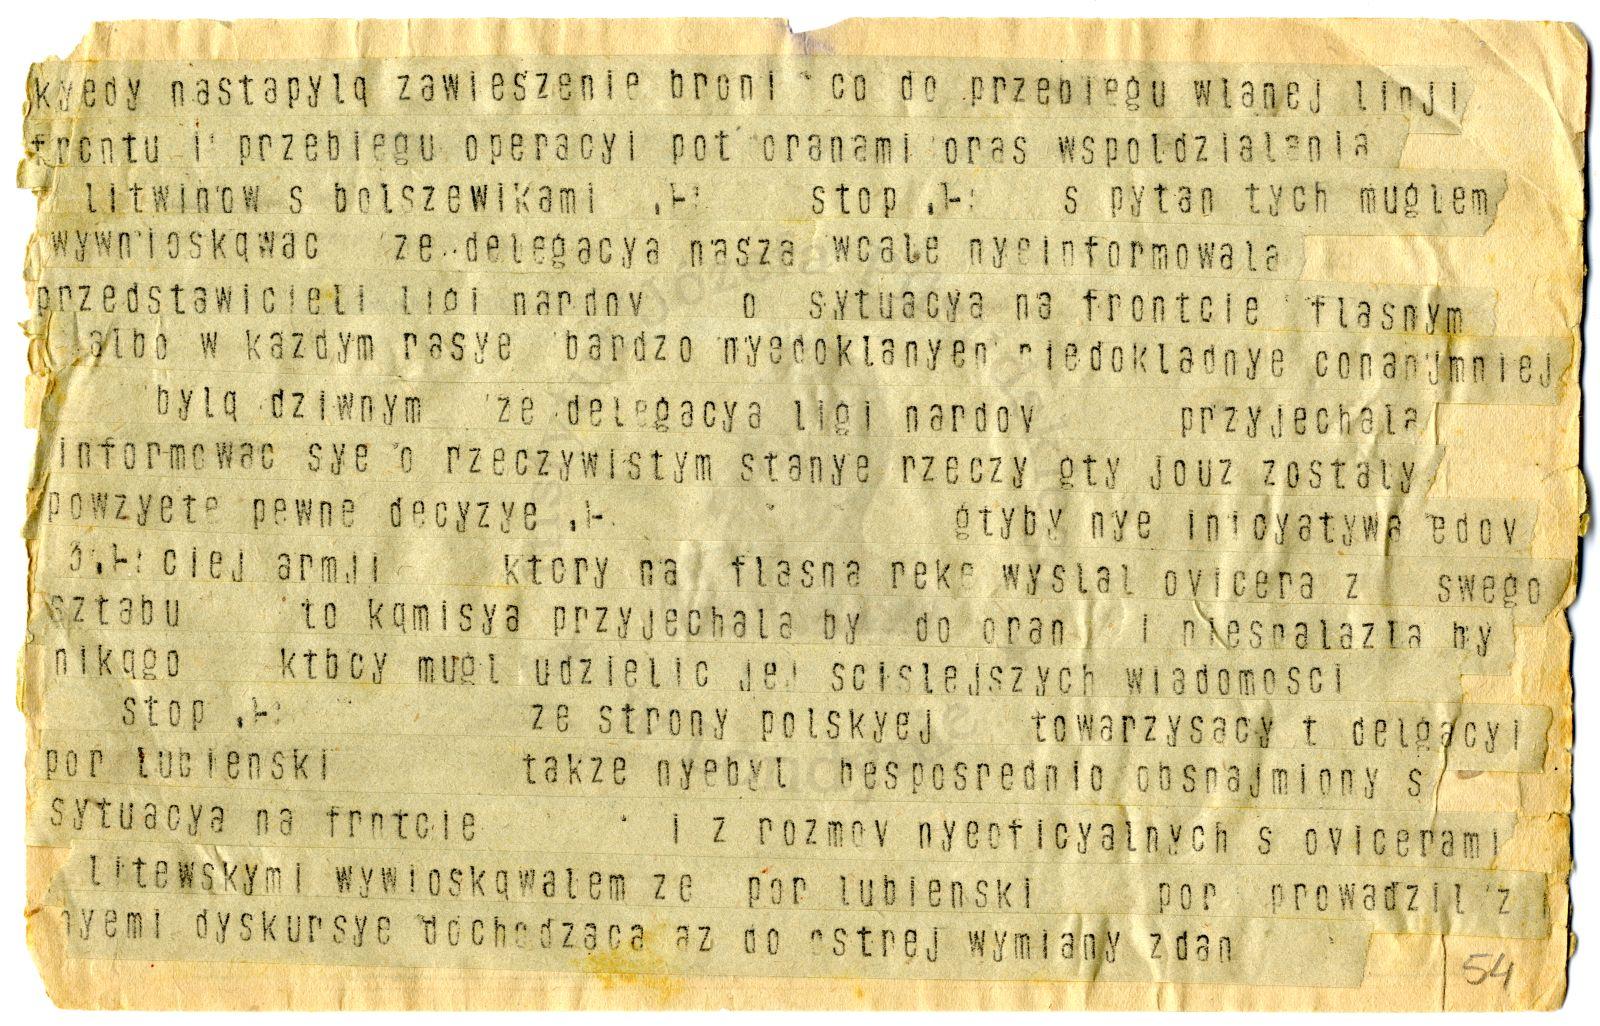 kyedy nastapylq zawieszenie broni co do przebiegu wlanej linji
frontu i przebiegu operacyi pot oranami oras wspoldzialania
litwinow s bolszewikami .-: stop .-: s pytan tych muglem
wywnioskqwac ze delegacya nasza wcale nyeinformowala
przedstawicieli ligi nardov o sytuacya na frontcie flasnym
albo w kazdym rasye bardzo nyedoklanyen niedokladnye conanjmniej
bylq dziwnym ze delegacya ligi nardov przyjechala
informowac sye o rzeczywistym stanye rzeczy gty jouz zostaly
powzyete pewne decyzye .- gtyby nye inicyatywa edov
3.-:ciej armji ktory na flasna reke wyslal ovicera z swego
sztabu to kqmisya przyjechala by do oran i niesnalazla by
nikqgo ktocy mugl udzielic jej scislejszych wiadomosci
stop .-: ze strony polskyej towarzysacy t delgacyi
por lubienski takze nyebyl besposrednio obsnajmiony s
sytuacya na frntcie i z rozmov nyeoficyalnych s ovicerami
litewskymi wywioskqwalem ze por lubienski por prowadzil z i
nyemi dyskursye dochodzaca az do ostrej wymiany zdan
54